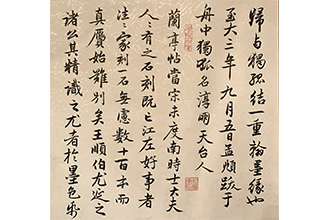 歸與獨孤結一重翰墨緣也
至大三年九月五日孟頫跋于
舟中獨孤名淳朋天台人
蘭亭帖當宋未度南時士大夫
人人有之石刻既亡江左好事者
往往家刻一石無慮數十百本而
真贋始難別矣王順伯尤延之
諸公其精識之尤者於墨色紙